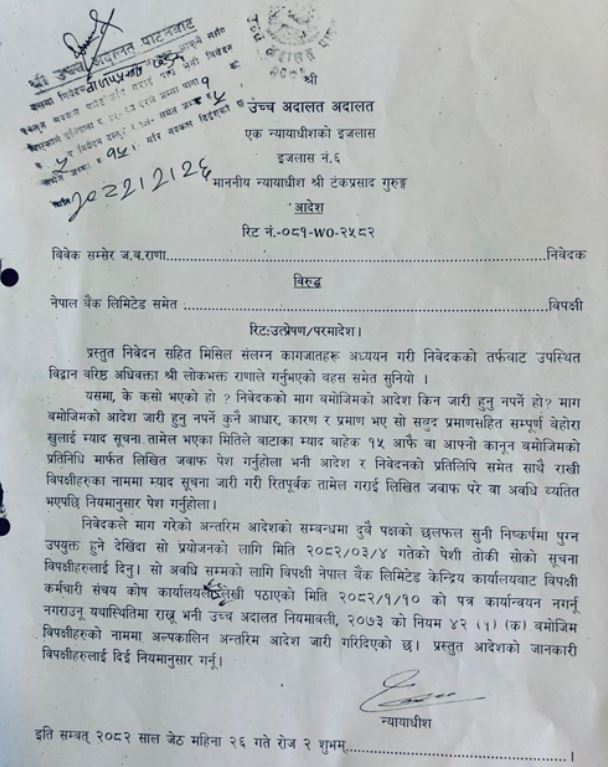 श्री उच्च अदालत पाटनबाट
२०८२।२।२६
श्री
उच्च अदालत अदालत
एक न्यायाधीशको इजलास
इजलास नं.६
माननीय न्यायाधीश श्री टंकप्रसाद गुरुङ्ग
आदेश
रिट नं.-०८१-WO-२५८२
विवेक सम्सेर ज.ब.राणा..........निवेदक
विरुद्ध
नेपाल बैंक लिमिटेड समेत :..........विपक्षी
रिट:उत्प्रेषण/परमादेश।
प्रस्तुत निवेदन सहित मिसिल संलग्न कागजातहरू अध्ययन गरी निवेदकको तर्फवाट उपस्थित
विद्वान वरिष्ठ अधिवक्ता श्री लोकभक्त राणाले गर्नुभएको बहस समेत सुनियो ।
यसमा, के कसो भएको हो ? निवेदकको माग बमोजिमको आदेश किन जारी हुनु नपर्ने हो? माग
बमोजिमको आदेश जारी हुनु नपर्ने कुनै आधार, कारण र प्रमाण भए सो सवुद प्रमाणसहित सम्पूर्ण बेहोरा
खुलाई म्याद सूचना तामेल भएका मितिले वाटाका म्याद बाहेक १५ आफै वा आफ्नो कानून बमोजिमको
प्रतिनिधि मार्फत लिखित जवाफ पेश गर्नुहोला भनी आदेश र निवेदनको प्रतिलिपि समेत साथै राखी
विपक्षीहरुका नाममा म्याद सूचना जारी गरी रितपूर्वक तामेल गराई लिखित जवाफ परे वा अवधि व्यतित
भएपछि नियमानुसार पेश गर्नुहोला।
निवेदकले माग गरेको अन्तरिम आदेशको सम्बन्धमा दुवै पक्षको छलफल सुनी निष्कर्षमा पुग्न
उपयुक्त हुने देखिंदा सो प्रयोजनको लागि मिति २०८२/०३/४ गतेको पेशी तोकी सोको सूचना
विपक्षीहरुलाई दिनु। सो अवधि सम्मको लागि विपक्षी नेपाल बैंक लिमिटेड केन्द्रिय कार्यालयवाट विपक्षी
कर्मचारी संचय कोष कार्यालयलाई लेखी पठाएको मिति २०८२/१/१० को पत्र कार्यान्वयन नगर्नू
नगराउनू यथास्थितिमा राख्नू भनी उच्च अदालत नियमावली, २०७३ को नियम ४२ (१) (क) बमोजिम
विपक्षीहरुको नाममा अल्पकालिन अन्तरिम आदेश जारी गरिदिएको छ। प्रस्तुत आदेशको जानकारी
विपक्षीहरुलाई दिई नियमानुसार गर्नू।
न्यायाधीश
इति सम्वत् २०८२ साल जेठ महिना २६ गते रोज २ शुभम्..........।